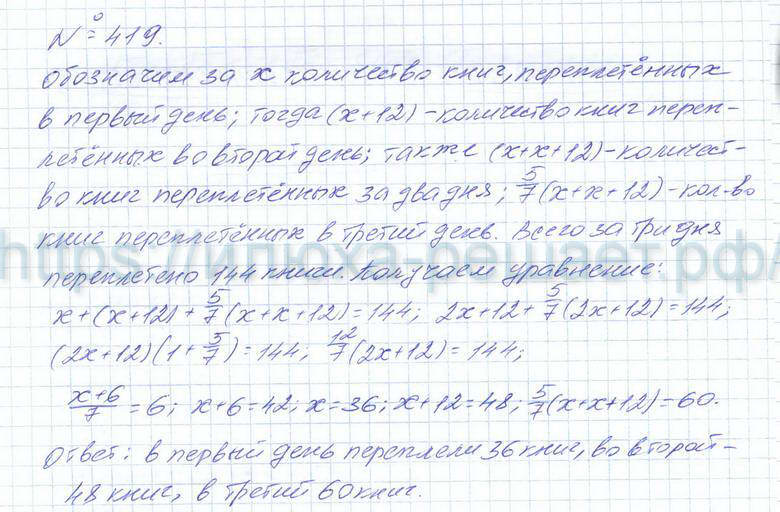 № 419.
Обозначим за x количество книг, переплетённых
в первый день; тогда (x+12) - количество книг переп-
летённых во второй день; также (x+x+12) - количест-
во книг переплетённых за два дня; 5/7(x+x+12) - кол-во
книг переплетённых в третий день. Всего за три дня
https://илюха-решает.рф/
переплетено 144 книги. Получаем уравнение:
x+(x+12)+5/7(x+x+12)=144; 2x+12+5/7(2x+12)=144;
(2x+12)(1+5/7)=144; 12/7(2x+12)=144;
(x+6)/7=6; x+6=42; x=36; x+12=48; 5/7(x+x+12)=60.
Ответ: в первый день переплели 36 книг, во второй -
48 книг, в третий 60 книг.